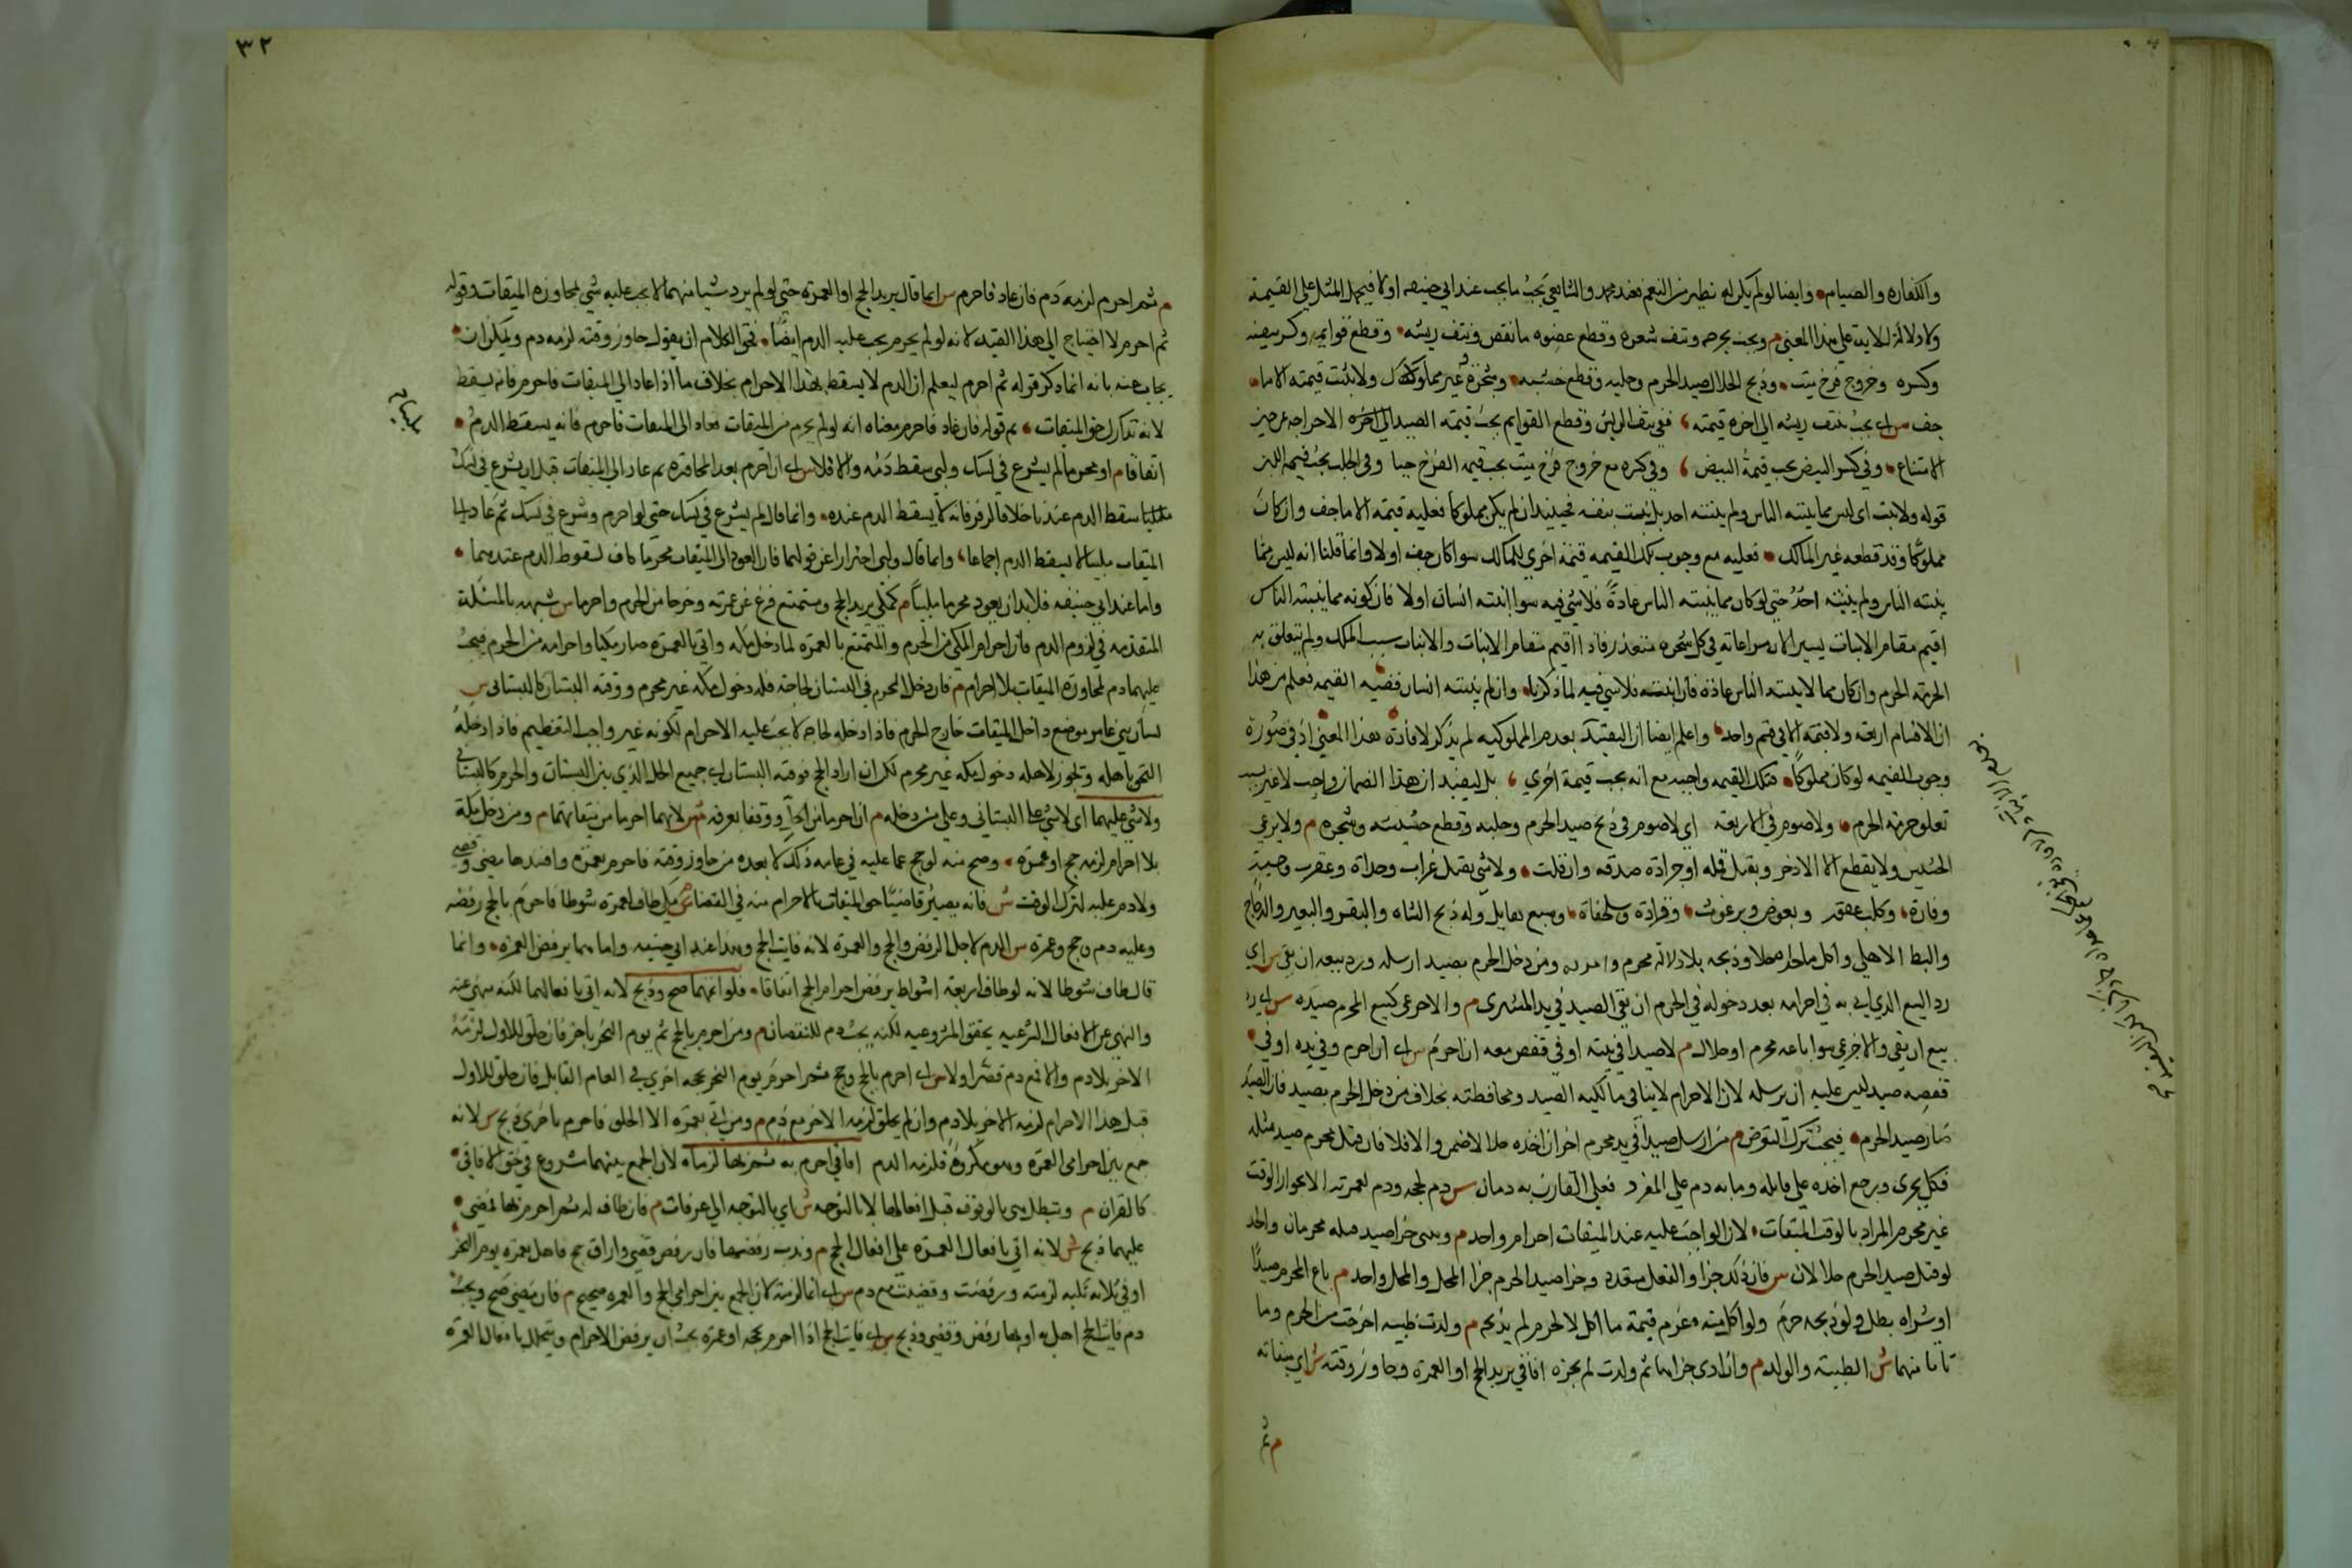 والكفاره والصيام وايضا لو لم يكن له نظير من النعم فعند محمد والشافعي يجب ما يجب عند ابي حنيفه اولا فيحمل المثل على القيمة
ولا دلالة للاية على هذا المعنى م ويجب بجرحه ونتف شعره وقطع عضوه ما نقص ونتف ريشه وقطع قوايمه وكسر بيضه
وكسره وخروج فرخ ميت وذبح الحلال صيد الحرم وحلبه وقطع حشيشه وشجره غير مملوك ولا منبت قيمته الا ما
جف س اي يجب بنتف ريشه الى اخره قيمته ففي نتف الريش وقطع القوايم يجب قيمته الصيد الى اخره لاخراجه عن حيز
الامتناع وفي كسر البيض يجب قيمة البيض وفي كسره مع خروج فرخ ميت يجب قيمة الفرخ حيا وفي الحلب يجب قيمة اللبن
قوله ولا منبت اي ليس مما ينبته الناس ولم ينبته احد بل نبت بنفسه فحينيذ ان لم يكن مملوكا فعليه قيمته الا ما جف وان كان
مملوكا وقد قطعه غير المالك فعليه مع وجوب تلك القيمه قيمة اخرى للمالك سوا كان جفه اولا وانما قلنا انه ليس مما
ينبته الناس ولم ينبته احد حتى لو كان مما ينبته الناس عادة فلا شي فيه سوا انبته انسان اولا فان كونه مما ينبته الناس
اقيم مقام الانبات تيسيرا لان مراعاته في كل شجره متعذر فاذا اقيم مقام الانبات والانبات سبب الملك ولم يتعلق به
الحرمة الحرم وان كان مما لا ينبته الناس عادة فان انبته فلا شي فيه لما ذكرنا وان لم ينبته انسان ففيه القيمه فعلم من هذا
ان الاقسام اربعه ولا قيمة الا في قسم واحد واعلم ايضا ان التقييد بعدم المملوكيه لم يذكر لافادة هذا المعنى اذ في صورة
وجوب القيمه لو كان مملوكا فتلك القيمه واجبه مع انه يجب قيمة اخرى بل ليفيد ان هذا الضمان واجب لا غير بسبب
تعلق حرمة الحرم ولا صوم في الاربعه اي لا صوم في ذبح صيد الحرم وحلبه وقطع حشيشه وشجره م ولا يرعى
الحشيش ولا يقطع الا الاذخر وبقتل قمله او جرادة صدقه وان قلت ولا شي بقتل غراب وحداة وعقرب وحية
وفارة وكلب عقور وبعوض وبرغوث وقرادة وسلحفاة وسبع صايل وله ذبح الشاة والبقر والبعير والدجاج
والبط الاهلي واكل ما صاد حلال وذبحه بلا دلالة محرم وامره به ومن دخل الحرم بصيد ارسله ورد بيعه ان بقى س اي
رد البيع الذي اتى به في احرامه بعد دخوله في الحرم ان بقى الصيد في يد المشتري م والا جزى كبيع المحرم صيده س اي رد
بيع ان بقى والا جزى سوا باعه محرم او حلال م لا صيدا في بيته او في قفص معه ان احرم س اي ان احرم وفي يده او في
قفصه صيد ليس عليه ان يرسله لان الاحرام لا ينافي مالكيه الصيد ومحافظته بخلاف من دخل الحرم بصيد فان الصيد
صار صيد الحرم فيجب ترك التعرض م من ارسل صيدا في يد محرم اخر ان اخذه حلالا ضمن والا فلا فان قتل محرم صيد مثله
فكل يجزى ويرجع اخذه على قاتله وما به دم على المفرد فعلى القارن به دمان س دم لحجه ودم لعمرته الا بجواز الوقت
غير محرم المراد بالوقت الميقات لان الواجب عليه عند الميقات احرام واحد م وثنى جزا صيد قتله محرمان واحد
لو قتل صيد الحرم حلالان س فان ذلك جزا والفعل متعدد وجزا صيد الحرم جزا المحل والمحل واحد م باع المحرم صيدا
او شراه بطل ولو ذبحه حرم ولو اكل منه غرم قيمة ما اكل لا محرم لم يذبحه م ولدت ظبيه اخرجت من الحرم وما
تاتا منهما ش الظبيته والولد م وان ادى جزاها ثم ولدت لم يجزه افاقي يريد الحج او العمرة وجاوز وقته ش اي ميقاته
م ثم
٣٢
م ثم احرم لزمه دم فان عاد فاحرم س انما قال يريد الحج او العمرة حتى لو لم يرد شيا منهما لا يجب عليه شي لمجاوزه الميقات وقوله
ثم احرم لا احتياج الى هذا القيد لانه لو لم يحرم يجب عليه الدم ايضا فحق الكلام ان يقول جاوز وقته لزمه دم ويمكن ان
يجاب عنه بانه انما ذكر قوله ثم احرم ليعلم ان الدم لا يسقط بهذا الاحرام بخلاف ما اذا عاد الى الميقات فاحرم فانه يسقط
لانه تدارك حق الميقات ثم قوله فان عاد فاحرم معناه انه لو لم يحرم من الميقات فعاد الى الميقات فاحرم فانه يسقط الدم
اتفاقا م او محرما لم يشرع في نسك ولبى سقط دمه والا فلا س اي ان احرم بعد المجاوزه ثم عاد الى الميقات قبل ان يشرع في نسك
ملبيا سقط الدم عندنا خلافا لزفر فانه لا يسقط الدم عنده وانما قال لم يشرع في نسك حتى لو احرم وشرع في نسك ثم عاد الى
الميقات ملبيا لا يسقط الدم اجماعا وانما قال ولبى احترازا عن قولهما فان العود الى الميقات محرما كاف لسقوط الدم عندهما
واما عند ابي حنيفه فلا بد ان يعود محرما ملبيا م كمكي يريد الحج ومتمتع فرغ عن عمرته وخرجا من الحرم واحرما س شبهه بالمسئلة
المتقدمه في لزوم الدم فان احرام المكي من الحرم والمتمتع بالعمرة لما دخل مكه واتى بالعمرة صار مكيا واحرامه من الحرم فيجب
عليهما دم لمجاوزة الميقات بلا احرام م فان دخل المحرم في البستان لحاجته فله دخول مكه غير محرم ووقته البستان كالبستاني س
بستان بني عامر موضع داخل الميقات خارج الحرم فاذا دخله لحاجه لا يجب عليه الاحرام لكونه غير واجب التعظيم فاذا دخله
التحق باهله ويجوز لاهله دخول مكه غير محرم لكن ان اراد الحج فوقته البستان اي جميع الحل الذي بين البستان والحرم كالبستاني
ولا شي عليهما اي لا شي على البستاني وعلى من دخله م ان احرما من الحل ووقفا بعرفه س لانهما احرما من ميقاتهما م ومن دخل مكة
بلا احرام لزمه حج او عمرة وصح منه لو حج عما عليه في عامه ذلك لا بعده من جاوز وقته فاحرم بعمرة وافسدها مضى وقضى
ولا دم عليه لترك الوقت س فانه يصير قاضيا حق الميقات بالاحرام منه في القضا م مكي طاف لعمرة شوطا فاحرم بالحج رفضه
وعليه دم وحج وعمرة س الدم لاجل الرفض والحج والعمرة لانه فايت الحج وهذا عند ابي حنيفه واما عندهما يرفض العمرة وانما
قال طاف شوطا لانه لو طاف اربعة اشواط يرفض احرام الحج اتفاقا فلو اتمهما صح وذبح لانه اتى بافعالهما لكنه منهي عنه
والنهي عن الافعال الشرعيه يحقق المشروعيه لكنه يجب دم للنقصان م ومن احرم بالحج ثم يوم النحر باخر فان حلق للاول لزمه
الاخر بلا دم والا فمع دم قصر اولا س اي احرم بالحج وحج ثم احرم يوم النحر بحجه اخرى في العام القابل فان حلق للاول
قبل هذا الاحرام لزمه الاخر بلا دم وان لم يحلق لزمه الاخر مع دم م ومن اتى بعمرة الا الحلق فاحرم باخرى ذبح س لانه
جمع بين احرامي العمرة وهو مكروه فلزمه الدم افاقي احرم به ثم بها لزماه لان الجمع بينهما مشروع في حق الافاقي
كالقران م وتبطل هي بالوقوف قبل افعالها لا بالتوجه ش اي بالتوجه الى عرفات م فان طاف له ثم احرم بها فمضى
عليهما ذبح ش لانه اتى بافعال العمرة على افعال الحج م وندب رفضها فان رفض قضى واراق حج فاهل بعمرة يوم النحر
او في ثلاثة تليه لزمته ورفضت وقضيت مع دم س اي انما لزمته لان الجمع بين احرامي الحج والعمره صحيح م فان مضى صح ويجب
دم فايت الحج اهل به او بها رفض وقضى وذبح س اي فايت الحج اذا احرم بحجه او عمرة يجب ان يرفض الاحرام ويتحلل بافعال العمرة